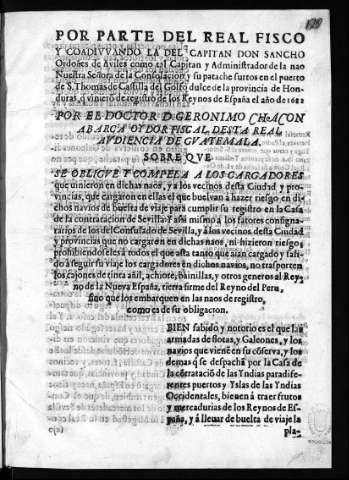 129
POR PARTE DEL REAL FISCO
Y COADIVVANDO LA DEL CAPITAN DON SANCHO
Ordoñes de Aviles como tal Capitan y Administrador de la nao
Nuestra Señora de la Consolacion y su patache surtos en el puerto
de S. Thomas de Castilla del Golfo dulce de la provincia de Hon
duras, q̃ vinierō de registro de los Reynos de España el año de
POR EL DOCTOR D. GERONIMO CHACON
ABARCA OYDOR FISCAL, DESTA REAL
AVDIENCIA DE GVATEMALA.
SOBRE QVE
SE OBLIGVE Y COMPELA A LOS CARGADORES
que vinieron en dichas naos, y a los vecinos desta Ciudad y pro-
vincias, que cargaron en ellas el que buelvan à hazer riesgo en di-
chos navios de buelta de viaje para cumplir su registro en la Casa
de la contratacion de Sevilla: Y assi mismo a los fatores consigna-
tarios de los del Consulado de Sevilla, y à los vecinos desta Ciudad
y provincias que no cargaron en dichas naos, ni hizieron riesgo,
prohibiendoles à todos el que asta tanto que aian cargado y sali-
do à seguir su viaje los cargadores en dichos navios, no trasporten
los cajones de tinta añil, achiote, bainillas, y otros generos al Rey-
no de la Nueva España, tierra firme del Reyno del Peru,
sino que los embarquen en las naos de registro,
como es de su obligacion.
BIEN sabido y notorio es el que las
armadas de flotas, y Galeones, y los
navios que vienē en su cōserva, y los
demas q̃ se despachā por la Casa de
la cōtratatiō de las Yndias para dife-
rentes puertos y Yslas de las Yndias
Occidentales, bienen à traer frutos
y mercadurias de los Reynos de Es-
paña, y à llevar de buelta de viaje la
pla-